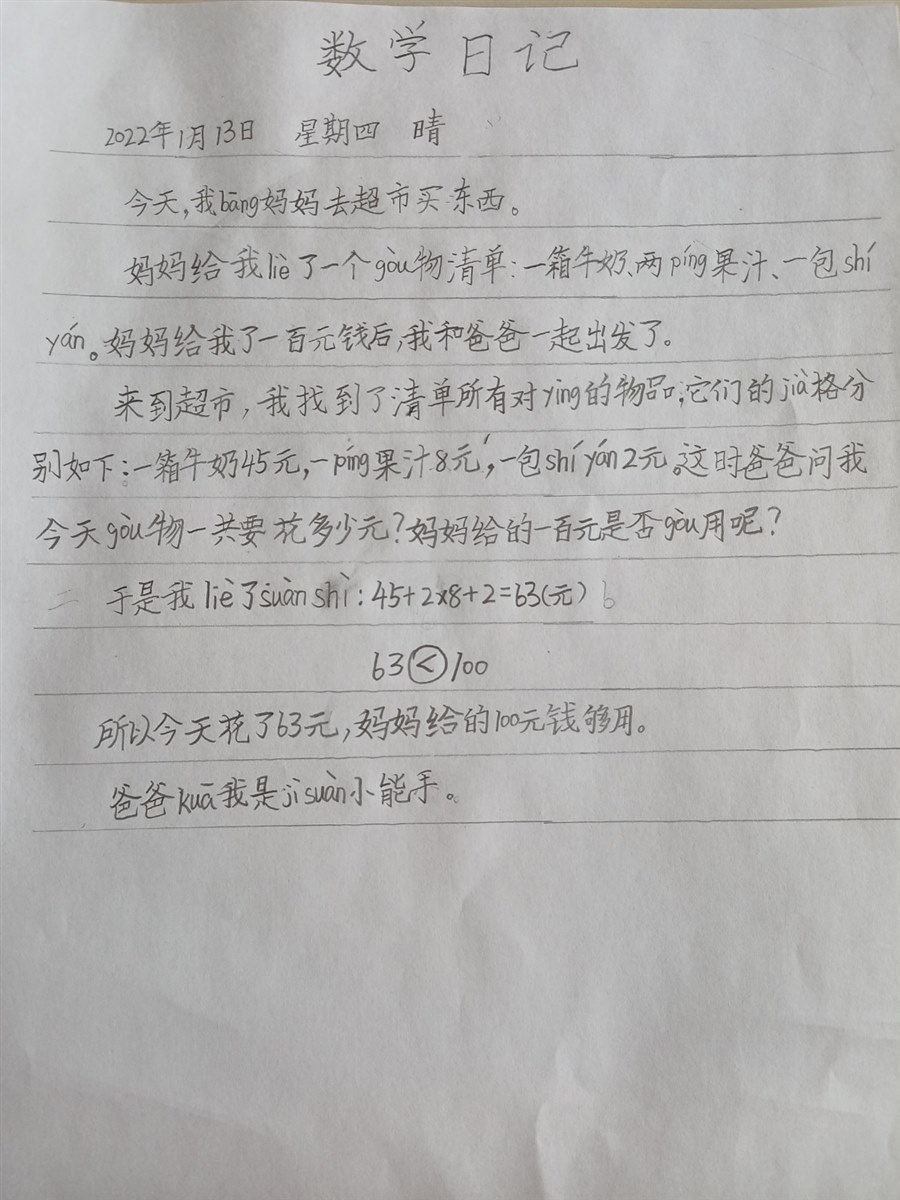 数学日记
2022年1月13日 星期四 晴
今天,我bāng妈妈去超市买东西。
妈妈给我liè了一个gòu物清单:一箱牛奶、两píng果汁、一包shí
yán。妈妈给我了一百元钱后,我和爸爸一起出发了。
来到超市,我找到了清单所有对yìng的物品;它们的jià格分
别如下:一箱牛奶45元,一píng果汁8元,一包shí yán2元。这时爸爸问我
今天gòu物一共要花多少元?妈妈给的一百元是否gòu用呢?
于是我liè了suàn shì:45+2×8+2=63(元)
63<100
所以今天花了63元,妈妈给的100元钱够用。
爸爸kuā我是jì suàn小能手。